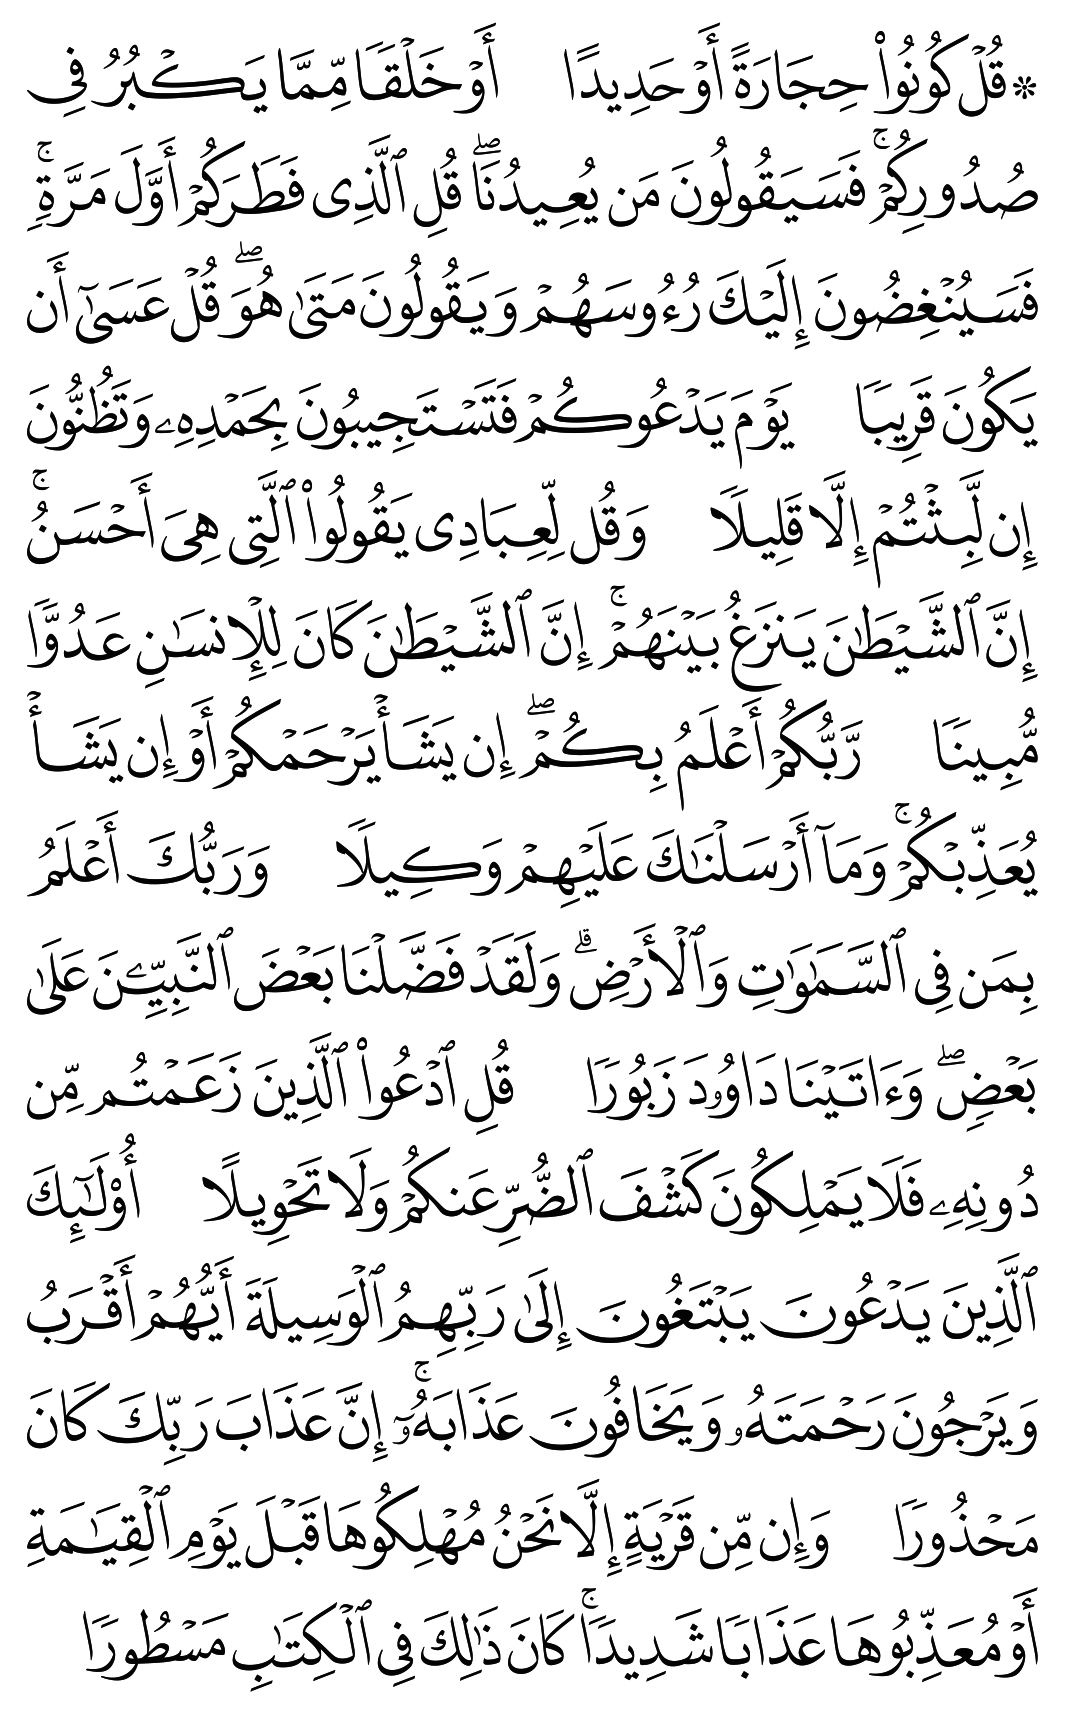 * قُلۡ كُونُواْ حِجَارَةً أَوۡ حَدِيدًا أَوۡ خَلۡقٗا مِّمَّا يَكۡبُرُ فِي
صُدُورِكُمۡۚ فَسَيَقُولُونَ مَن يُعِيدُنَاۖ قُلِ ٱلَّذِي فَطَرَكُمۡ أَوَّلَ مَرَّةٖۚ
فَسَيُنۡغِضُونَ إِلَيۡكَ رُءُوسَهُمۡ وَيَقُولُونَ مَتَىٰ هُوَۖ قُلۡ عَسَىٰٓ أَن
يَكُونَ قَرِيبٗا يَوۡمَ يَدۡعُوكُمۡ فَتَسۡتَجِيبُونَ بِحَمۡدِهِۦ وَتَظُنُّونَ
إِن لَّبِثۡتُمۡ إِلَّا قَلِيلٗا وَقُل لِّعِبَادِي يَقُولُواْ ٱلَّتِي هِيَ أَحۡسَنُۚ
إِنَّ ٱلشَّيۡطَٰنَ يَنزَغُ بَيۡنَهُمۡۚ إِنَّ ٱلشَّيۡطَٰنَ كَانَ لِلۡإِنسَٰنِ عَدُوّٗا
مُّبِينٗا رَّبُّكُمۡ أَعۡلَمُ بِكُمۡۖ إِن يَشَأۡ يَرۡحَمۡكُمۡ أَوۡ إِن يَشَأۡ
يُعَذِّبۡكُمۡۚ وَمَآ أَرۡسَلۡنَٰكَ عَلَيۡهِمۡ وَكِيلٗا وَرَبُّكَ أَعۡلَمُ
بِمَن فِي ٱلسَّمَٰوَٰتِ وَٱلۡأَرۡضِۗ وَلَقَدۡ فَضَّلۡنَا بَعۡضَ ٱلنَّبِيِّـۧنَ عَلَىٰ
بَعۡضٖۖ وَءَاتَيۡنَا دَاوُۥدَ زَبُورٗا قُلِ ٱدۡعُواْ ٱلَّذِينَ زَعَمۡتُم مِّن
دُونِهِۦ فَلَا يَمۡلِكُونَ كَشۡفَ ٱلضُّرِّ عَنكُمۡ وَلَا تَحۡوِيلًا أُوْلَٰٓئِكَ
ٱلَّذِينَ يَدۡعُونَ يَبۡتَغُونَ إِلَىٰ رَبِّهِمُ ٱلۡوَسِيلَةَ أَيُّهُمۡ أَقۡرَبُ
وَيَرۡجُونَ رَحۡمَتَهُۥ وَيَخَافُونَ عَذَابَهُۥٓۚ إِنَّ عَذَابَ رَبِّكَ كَانَ
مَحۡذُورٗا وَإِن مِّن قَرۡيَةٍ إِلَّا نَحۡنُ مُهۡلِكُوهَا قَبۡلَ يَوۡمِ ٱلۡقِيَٰمَةِ
أَوۡ مُعَذِّبُوهَا عَذَابٗا شَدِيدٗاۚ كَانَ ذَٰلِكَ فِي ٱلۡكِتَٰبِ مَسۡطُورٗا